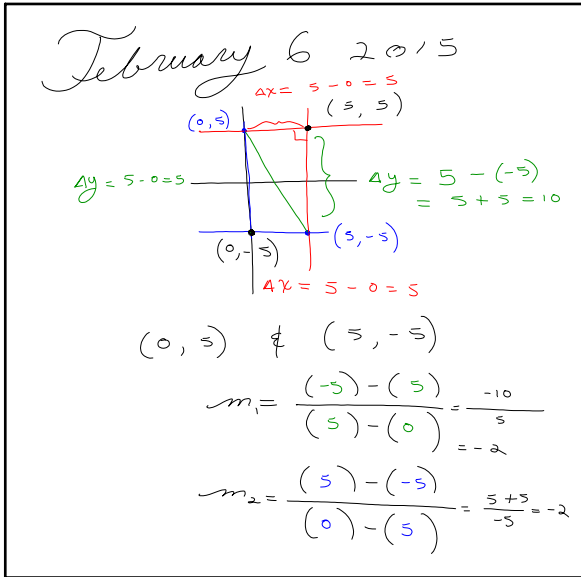 February 6 2015
Δx = 5 - 0 = 5
(0, 5)
(5, 5)
Δy = 5 - 0 = 5
Δy = 5 - (-5)
= 5 + 5 = 10
(0, -5)
(5, -5)
Δx = 5 - 0 = 5
(0, 5) & (5, -5)
m₁ = ((-5) - (5)) / ((5) - (0)) = -10 / 5
= -2
m₂ = ((5) - (-5)) / ((0) - (5)) = (5 + 5) / -5 = -2